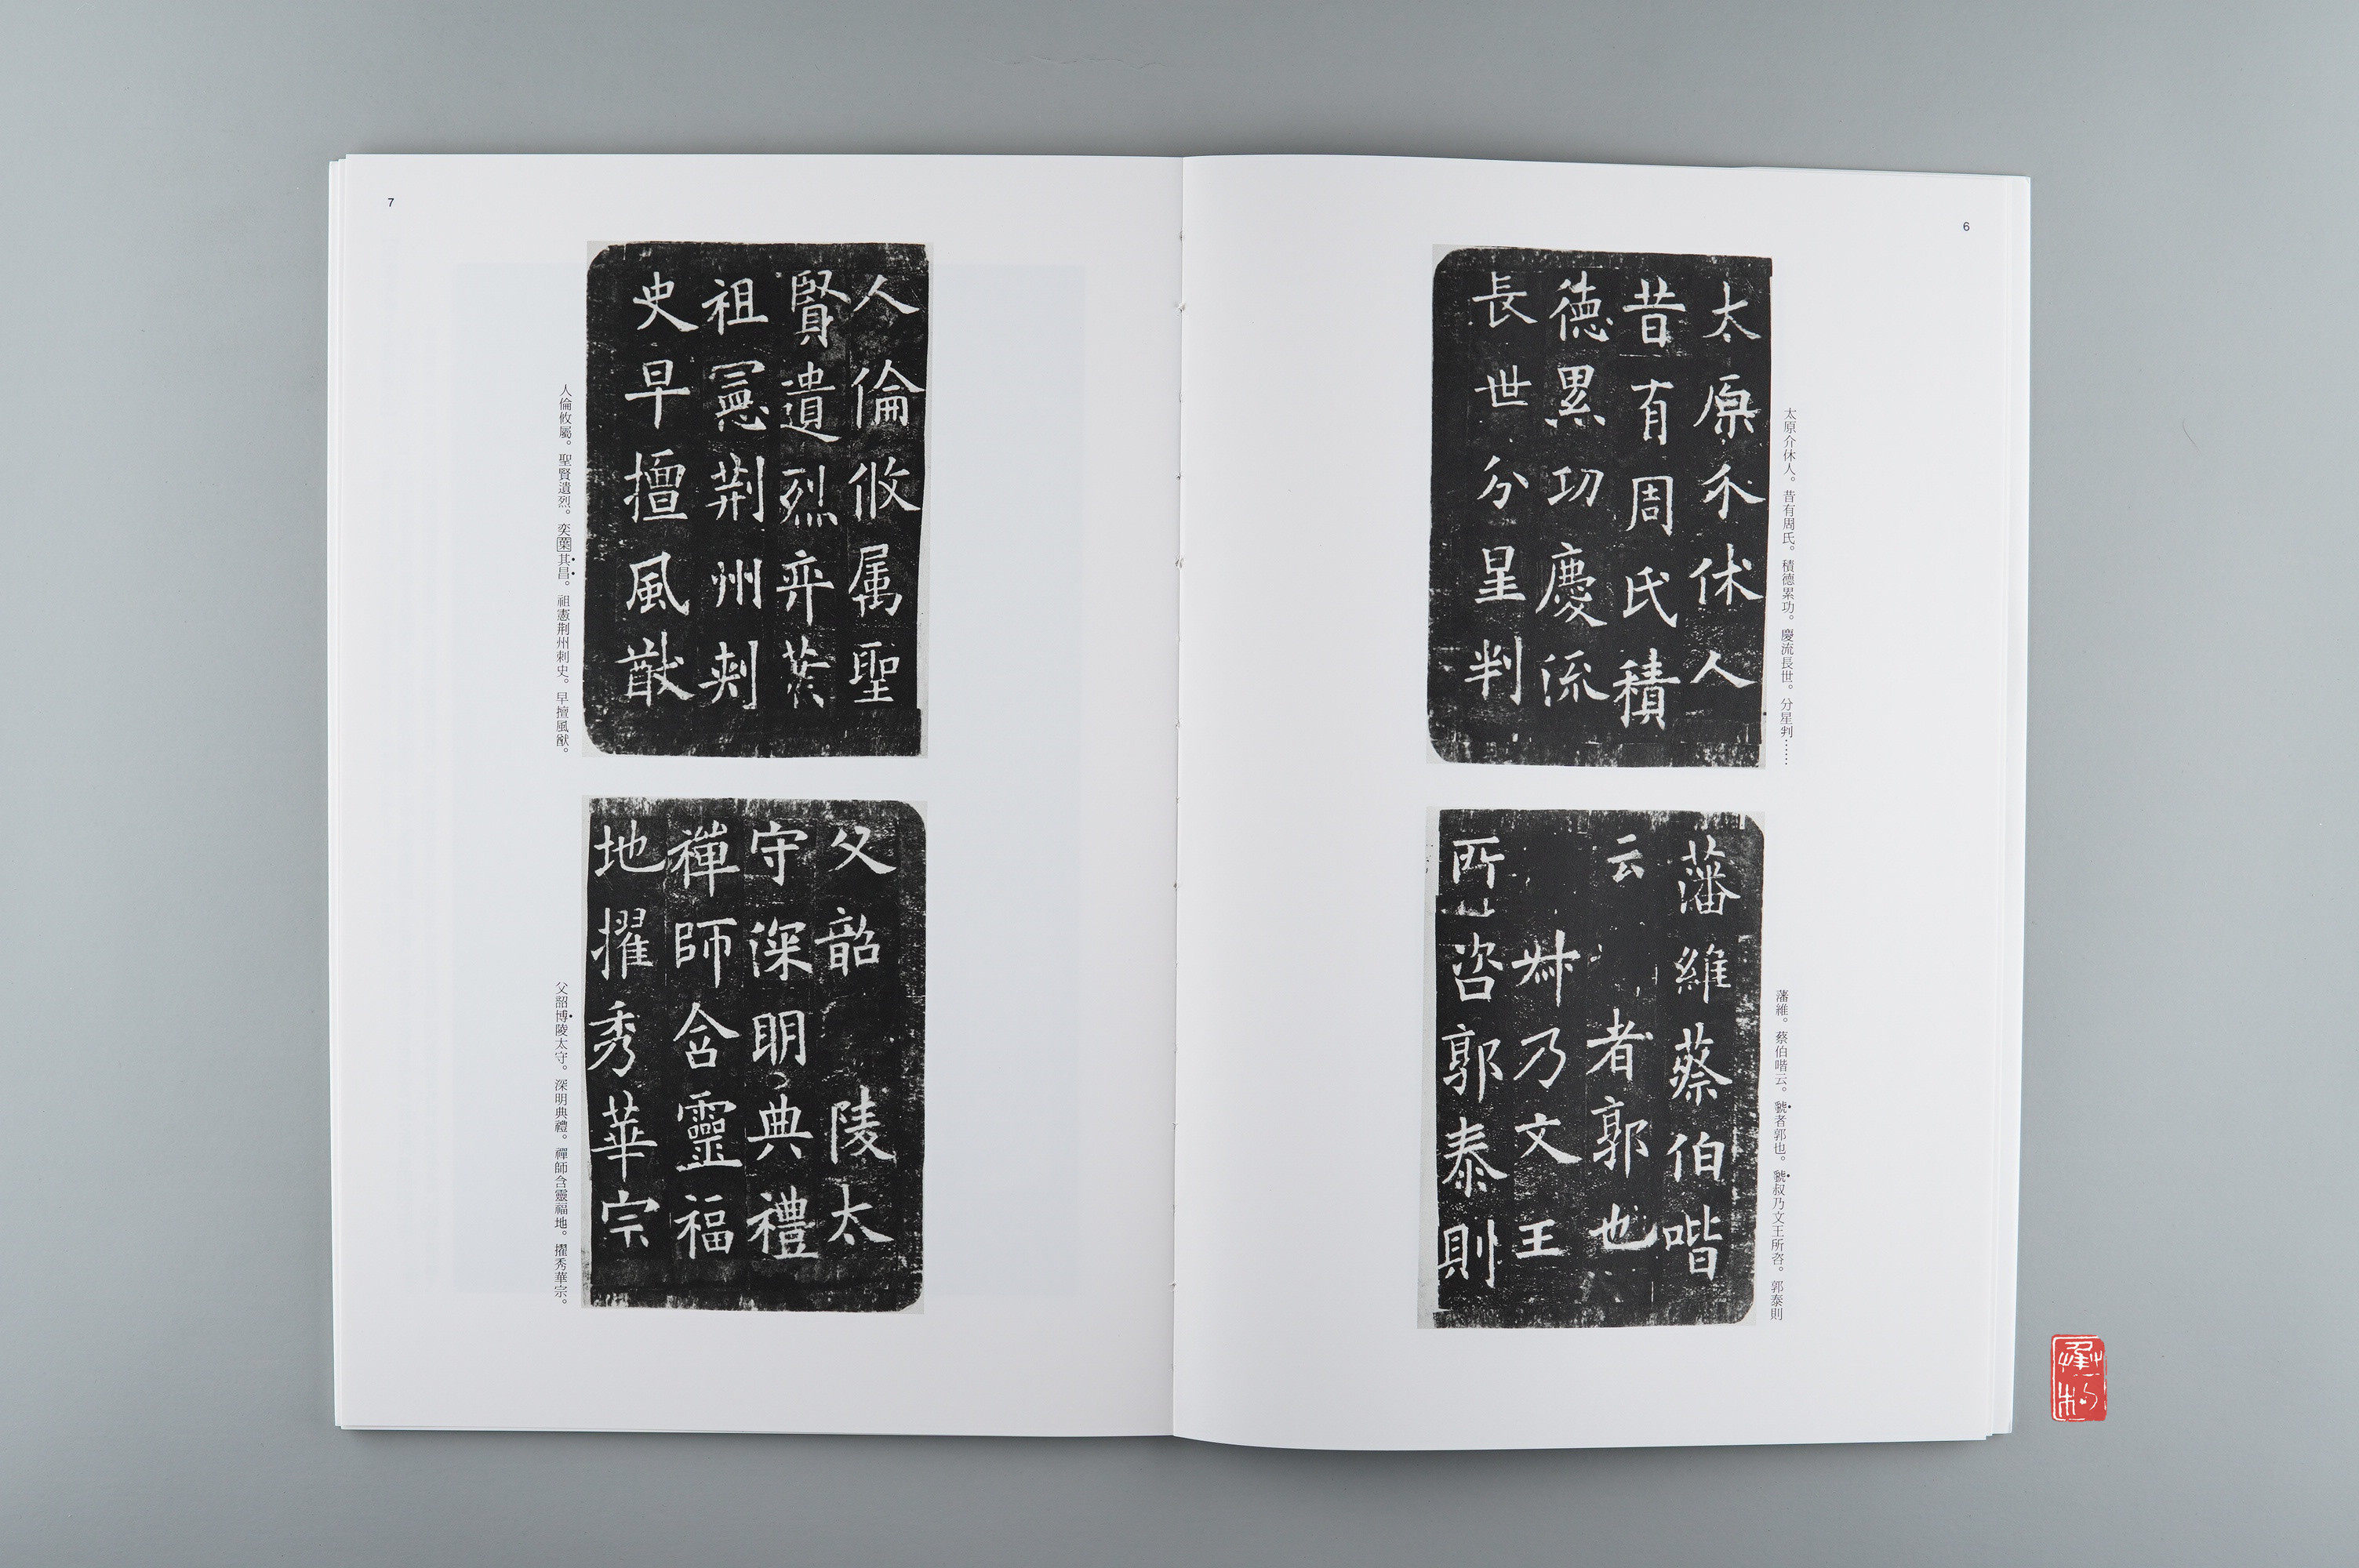 6
太原介休人。昔有周氏。積德累功。慶流長世。分星判……
太原介休人
昔有周氏積
德累功慶流
長世分星判
藩維。蔡伯喈云。虢者郭也。虢叔乃文王所咨。郭泰則
藩維蔡伯喈
云者郭也
叔乃文王
所咨郭泰則
7
人倫攸屬聖
賢遺烈弈葉
祖憲荆州刺
史早擅風猷
人倫攸屬。聖賢遺烈。奕葉其昌。祖憲荆州刺史。早擅風猷。
父韶陵太
守深明典禮
禪師含靈福
地擢秀華宗
父韶博陵太守。深明典禮。禪師含靈福地。擢秀華宗。